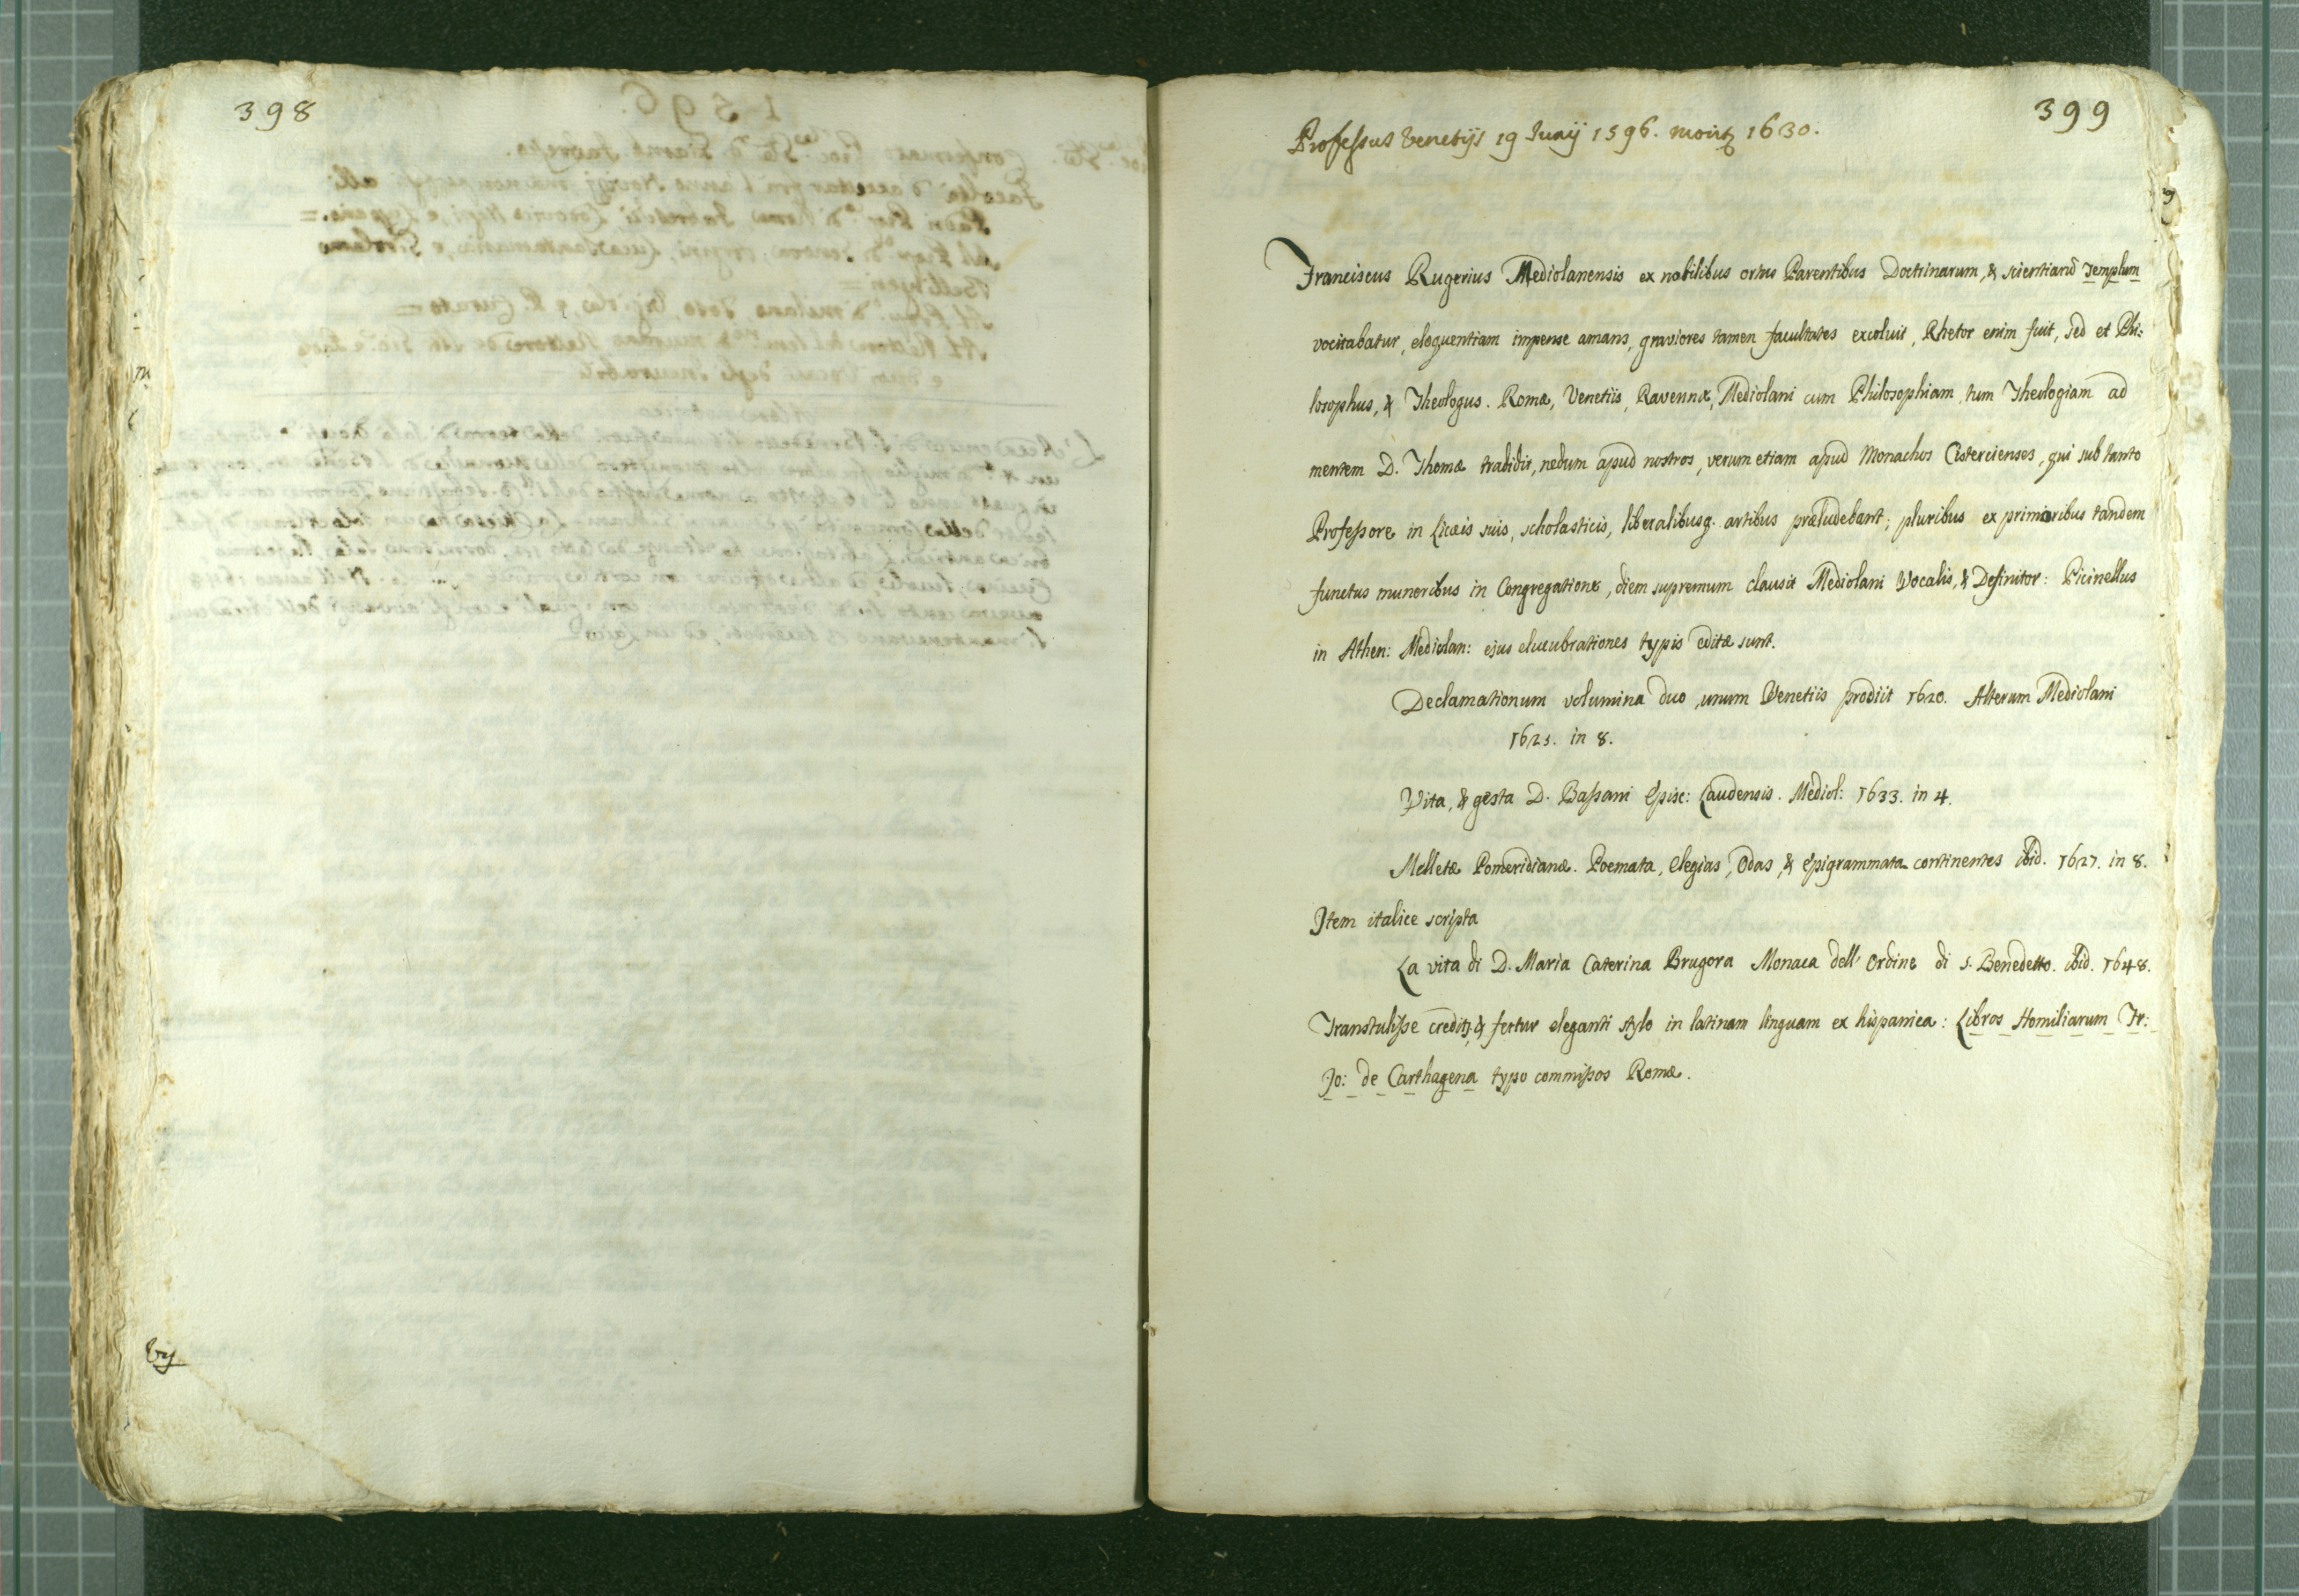 398
399
Professus Venetijs 19 Junij 1596. morit~ 1630.
Franciscus Rugerius Mediolanensis ex nobilibus ortus Parentibus Doctrinarum, & scientiarū Templum
vocitabatur, eloquentiam impense amans, graviores tamen facultates excoluit, Rhetor enim fuit, sed et Phi:
losophus, & Theologus. Romæ, Venetiis, Ravennæ, Mediolani cum Philosophiam, tum Theologiam ad
mentem D. Thomæ tradidit, nedum apud nostros, verum etiam apud Monachos Cistercienses, qui sub tanto
Professore in Licæis suis, scholasticis, liberalibusq. artibus præludebant; pluribus ex primioribus tandem
functus muneribus in Congregatione, diem supremum clausit Mediolani Vocalis, & Definitor: Picinellus
in Athen: Mediolan: ejus elucubrationes typis editæ sunt.
Declamationum volumina duo, unum Venetiis prodiit 1620. Alterum Mediolani
1621. in 8.
Vita, & gesta D. Bassani Episc: Laudensis. Mediol: 1633. in 4.
Melletæ Pomeridianæ. Poemata, elegias, Odas, & Epigrammata continentes ibid. 1627. in 8.
Item italice scripta
La vita di D. Maria Caterina Brugora Monaca dell' Ordine di S. Benedetto. ibid. 1648.
Transtulisse credit~, & fertur eleganti stylo in latinam linguam ex hispanica: Libros Homiliarum Fr:
Jo: de Carthagena typo commissos Romæ.